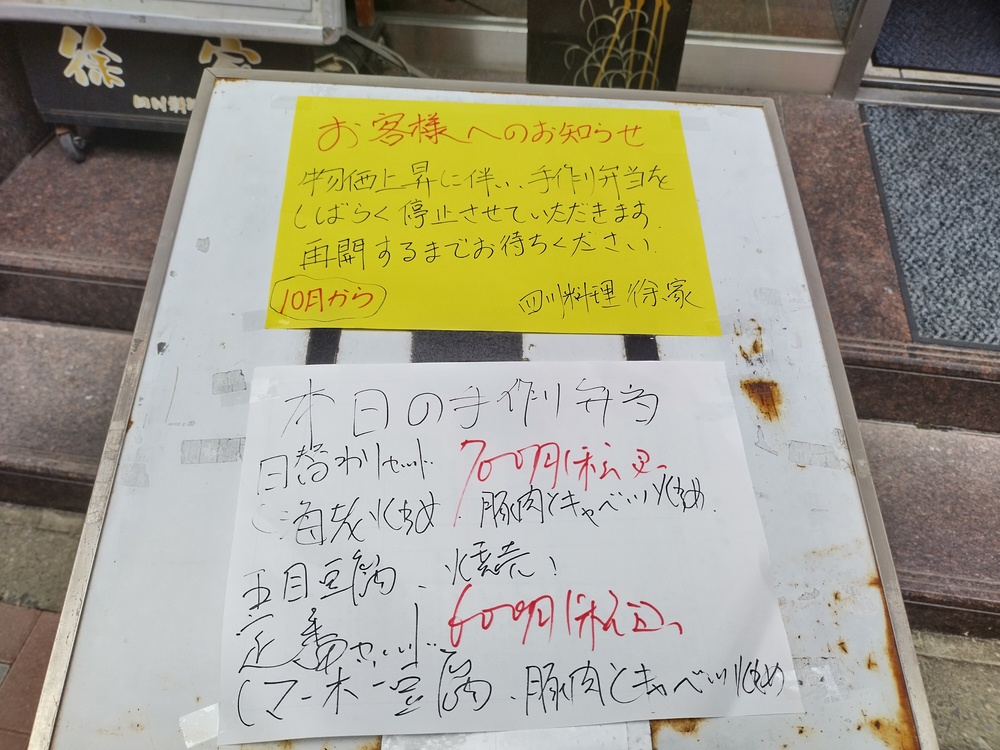 徐家
四川料
お客様へのお知らせ
物価上昇に伴い、手作り弁当を
しばらく停止させていただきます。
再開するまでお待ちください。
10月から
四川料理 徐家
本日の手作り弁当
日替わりセット 700円(税込)
炒め、豚肉とキャベツ炒め
五目豆腐、焼売!
定番セット 600円(税込)
(マーボー豆腐、豚肉とキャベツ炒め